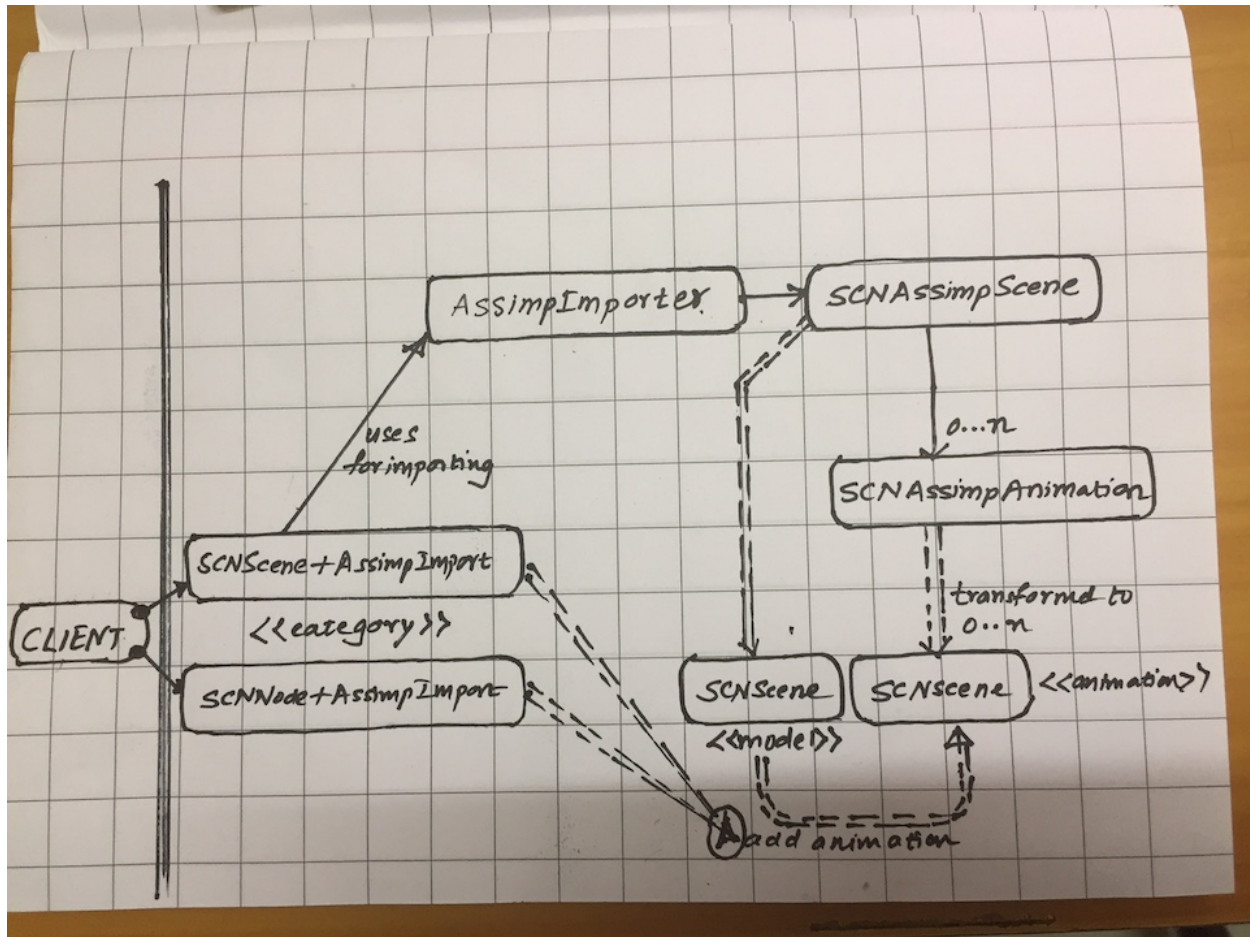 AssimpImporter.
SCNAssimpScene
uses
for importing
0...n
SCNAssimpAnimation
SCNScene+AssimpImport
<<category>>
CLIENT
SCNNode+AssimpImport
transformed to
0...n
SCNScene
SCNScene
<<animation>>
<<model>>
A
add animation